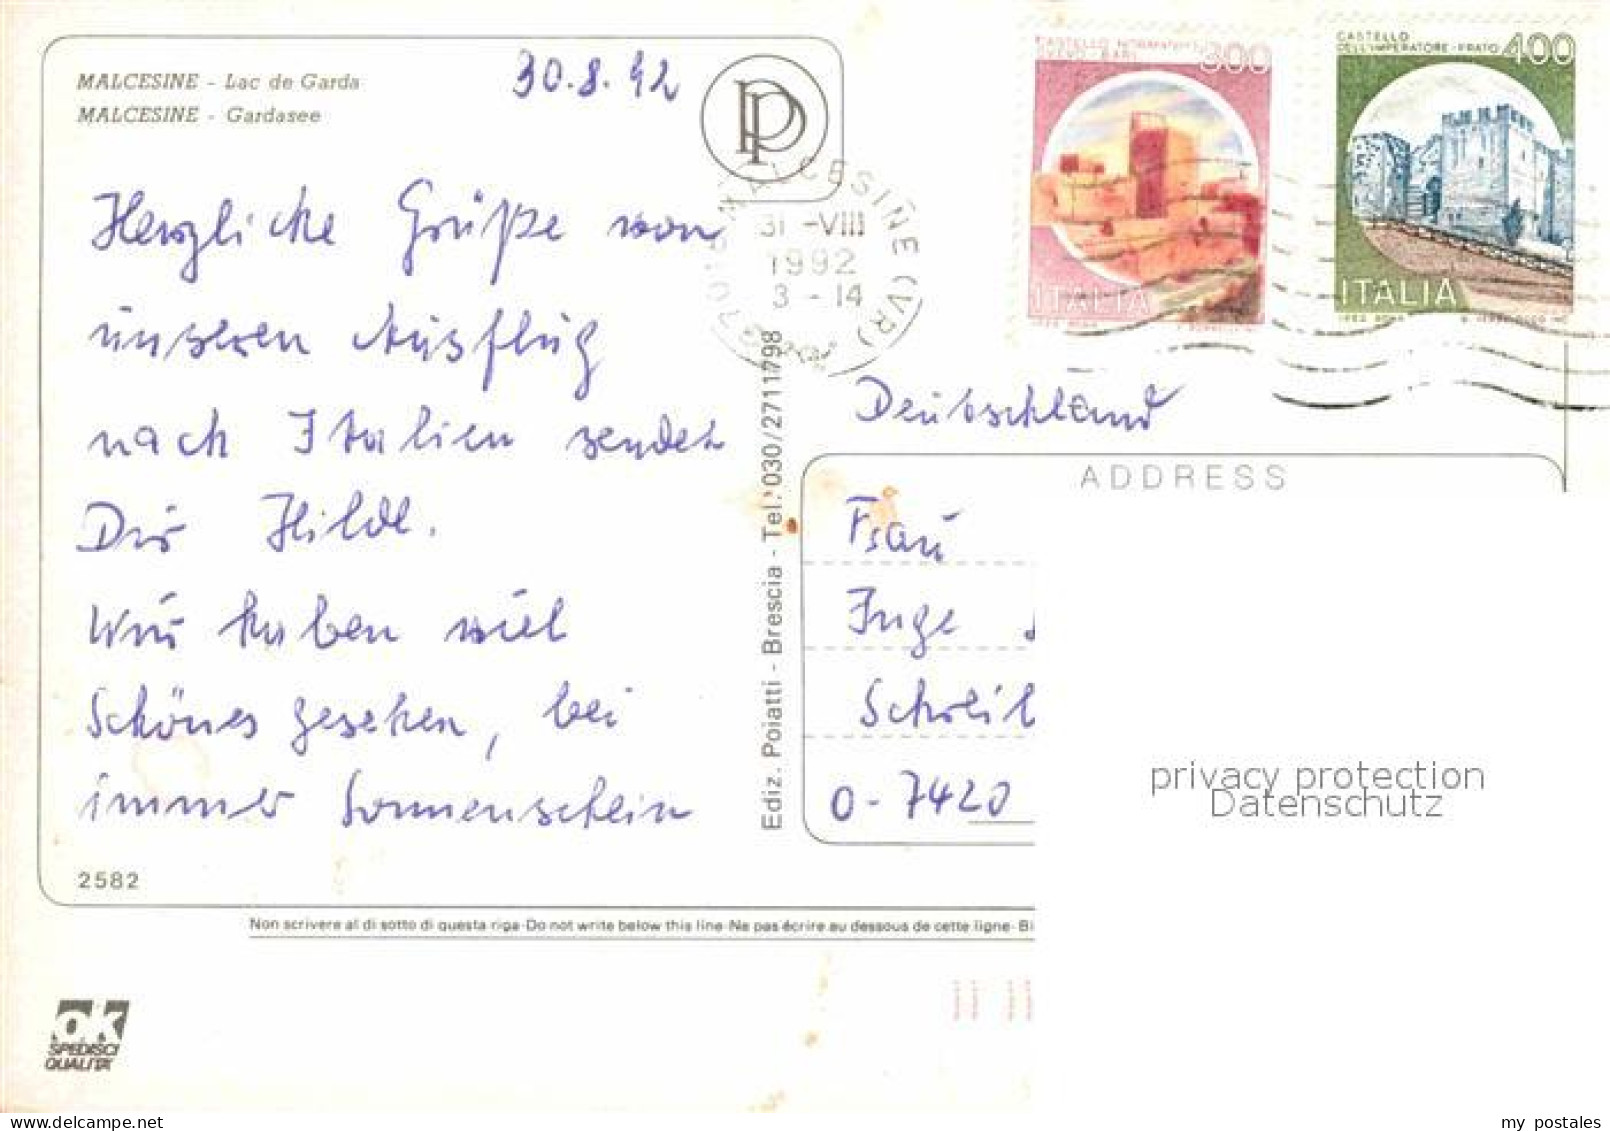 MALCESINE - Lac de Garda
MALCESINE - Gardasee
30.8.92
PP
Herzliche Grüße von
unseren Ausflug
nach Italien sendet
Dir Hilde.
Wir haben viel
Schönes gesehen, bei
immer Sonnenschein
2582
Ediz. Poiatti - Brescia - Tel. 030/2711798
MALCESINE (VR)
31 -VIII
1992
3 - 14
CASTELLO
300
ITALIA
CASTELLO
DELL'IMPERATORE - PRATO 400
ITALIA
Deutschland
ADDRESS
Frau
Inge
Schreib
O-7420
privacy protection
Datenschutz
Non scrivere al di sotto di questa riga-Do not write below this line-Ne pas écrire au dessous de cette ligne- Bi
ok
SPEDISCI
QUALITA'
www.delcampe.net
my_postales